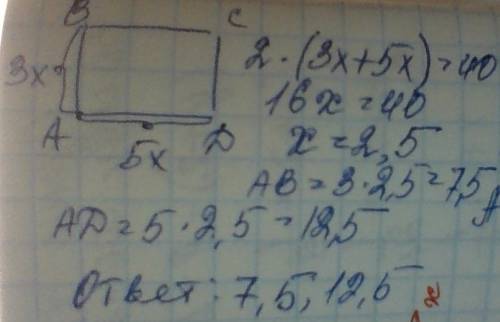 B C
3x
A D
5x
2 · (3x+5x) = 40
16x = 40
x = 2,5
AB = 3 · 2,5 = 7,5
AD = 5 · 2,5 = 12,5
Ответ: 7,5, 12,5
x